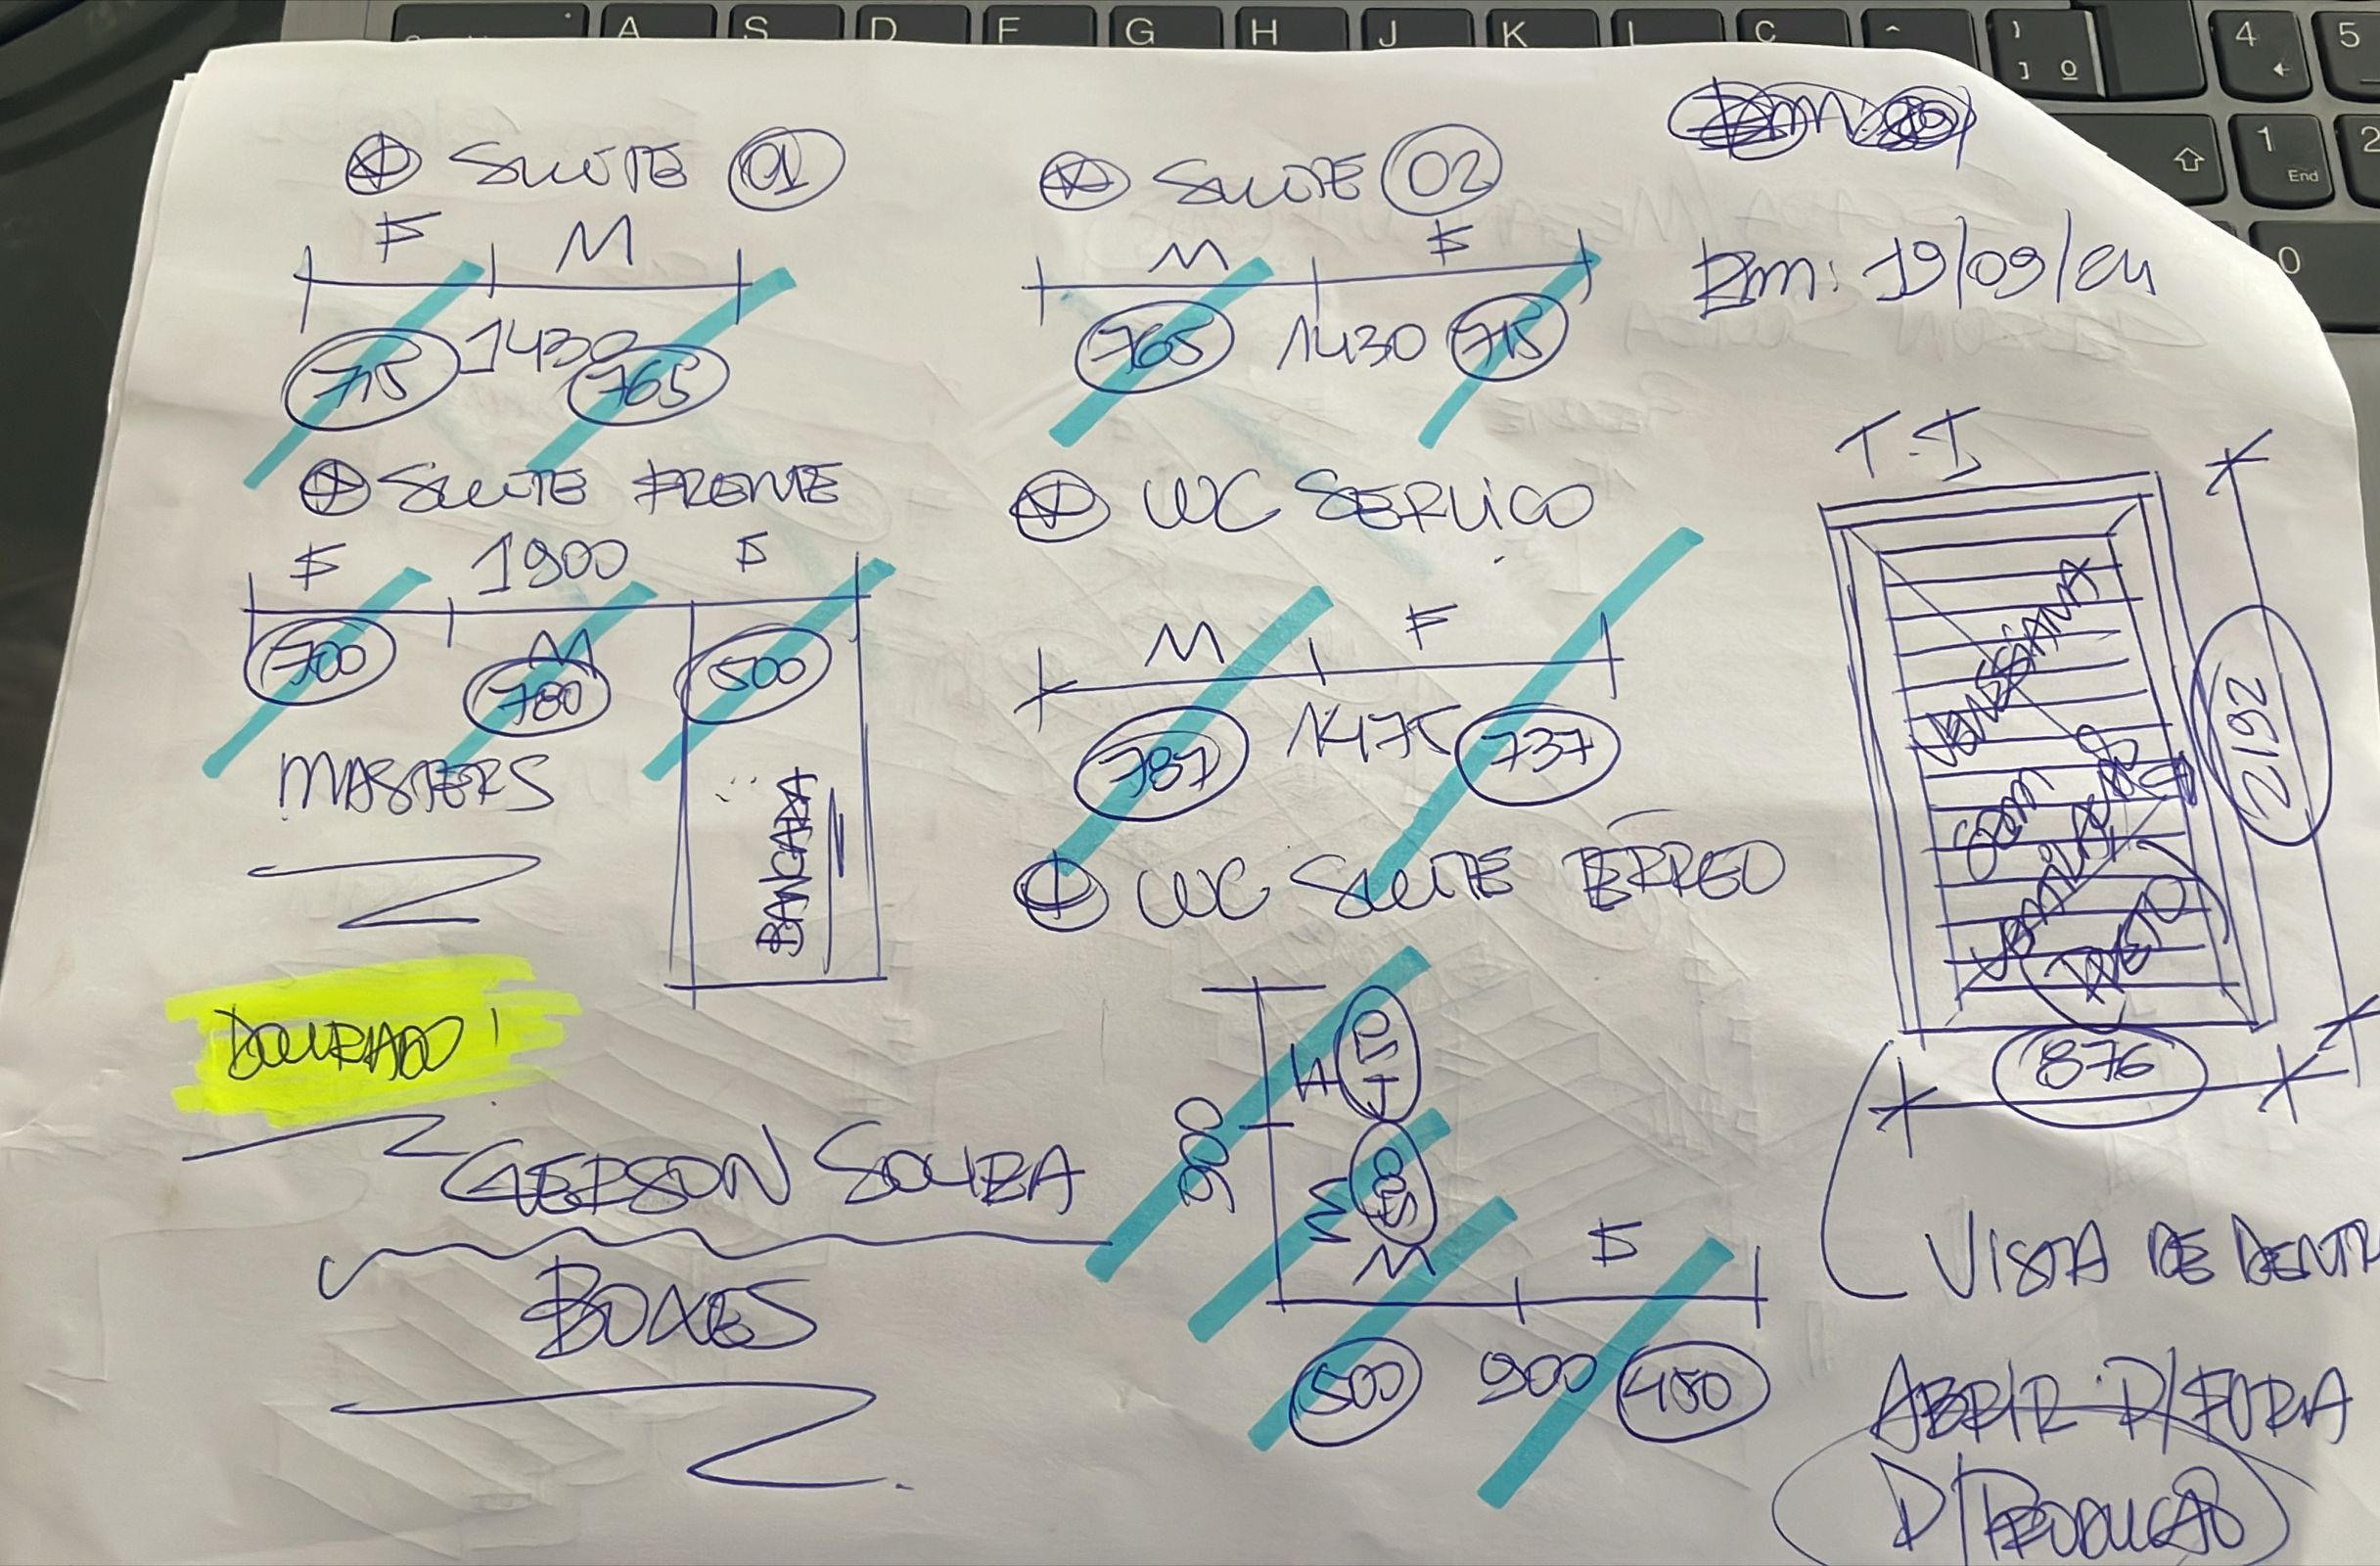 SUÍTE 01
F M
715 1430 765
SUÍTE 02
M F
765 1430 715
Em: 19/09/24
SUITE FRENTE
F 1900 F
700 M 780 500
MASTERS
BANCADA
DOURADO!
WC SERVIÇO
M F
787 1475 737
WC SUITE TÉRREO
900
F 450
M 500
M F
500 900 450
GERSON SOUZA
BOXES
VENEZIANA
COM
PRETO
2192
876
VISTA DE DENTR
ABRIR P/ FORA
P/ PRODUÇÃO
A
S
D
F
G
H
J
K
L
Ç
^
4
5
1
End
2
0